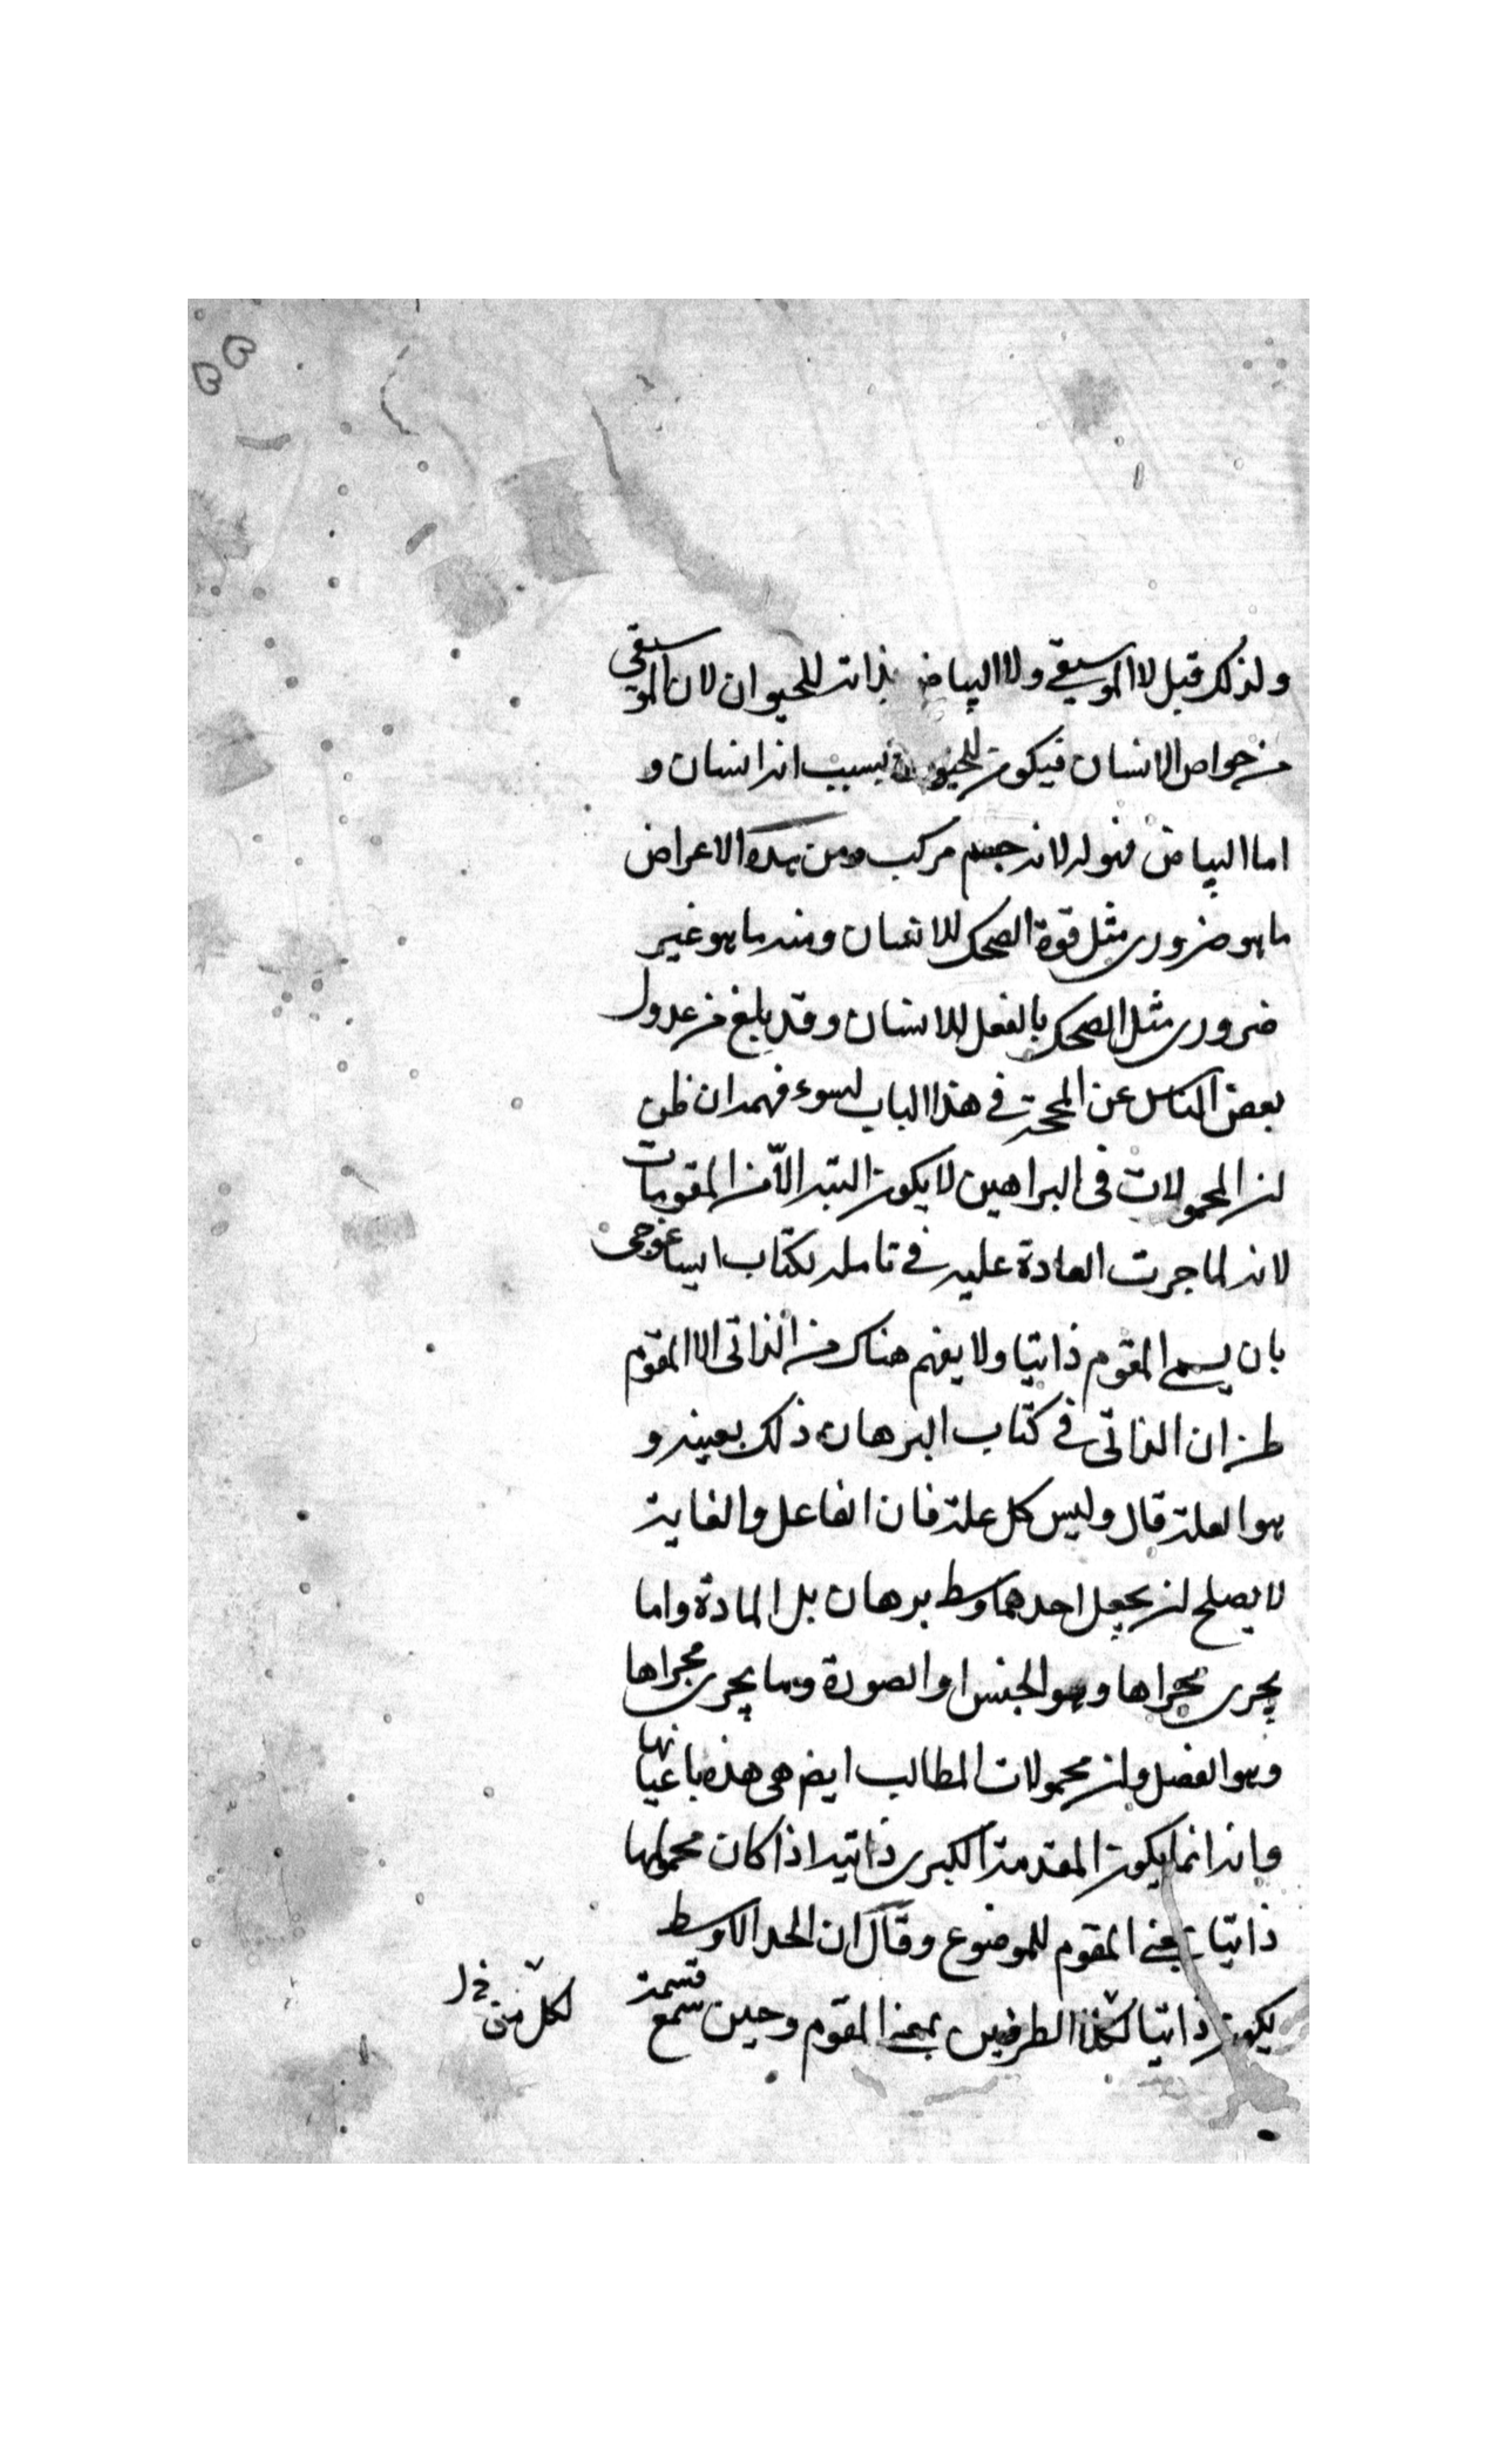 ولذلك قيل لا الموسيقى ولا البياض بذاته للحيوان لان الموسيقى
من خواص الانسان فيكون للحيوان بسبب انه انسان و
اما البياض فهو له لانه جسم مركب ومن هذه الاعراض
ما هو ضرورى مثل قوة الضحك للانسان ومنه ما هو غير
ضرورى مثل الضحك بالفعل للانسان وقد بلغ من عدول
بعض الناس عن المحجة فى هذا الباب لسوء فهمه ان ظن
ان المحمولات فى البراهين لا يكون البتة الّا من المقومات
لانه لما جرت العادة عليه فى تامله لكتاب ايساغوجى
بان يسمى المقوم ذاتيا ولا يفهم هناك من الذاتى الا المقوّم
ظن ان الذاتى فى كتاب البرهان ذلك بعينه و
هو العلة قال وليس كل علة فان الفاعل والغاية
لا يصلح ان يجعل احدهما وسط برهان بل المادة واما
يجرى مجراها وهو الجنس او الصورة وما يجرى مجراها
وهو الفصل وان محمولات المطالب ايض هى هذه باعيانها
وانه انما يكون المقدمة الكبرى ذاتية اذا كان محمولها
ذاتيا بمعنى المقوم للموضوع وقال ان الحد الاوسط
يكون ذاتيا لكلا الطرفين بمعنى المقوم وحين سمع قسمة
لكل من